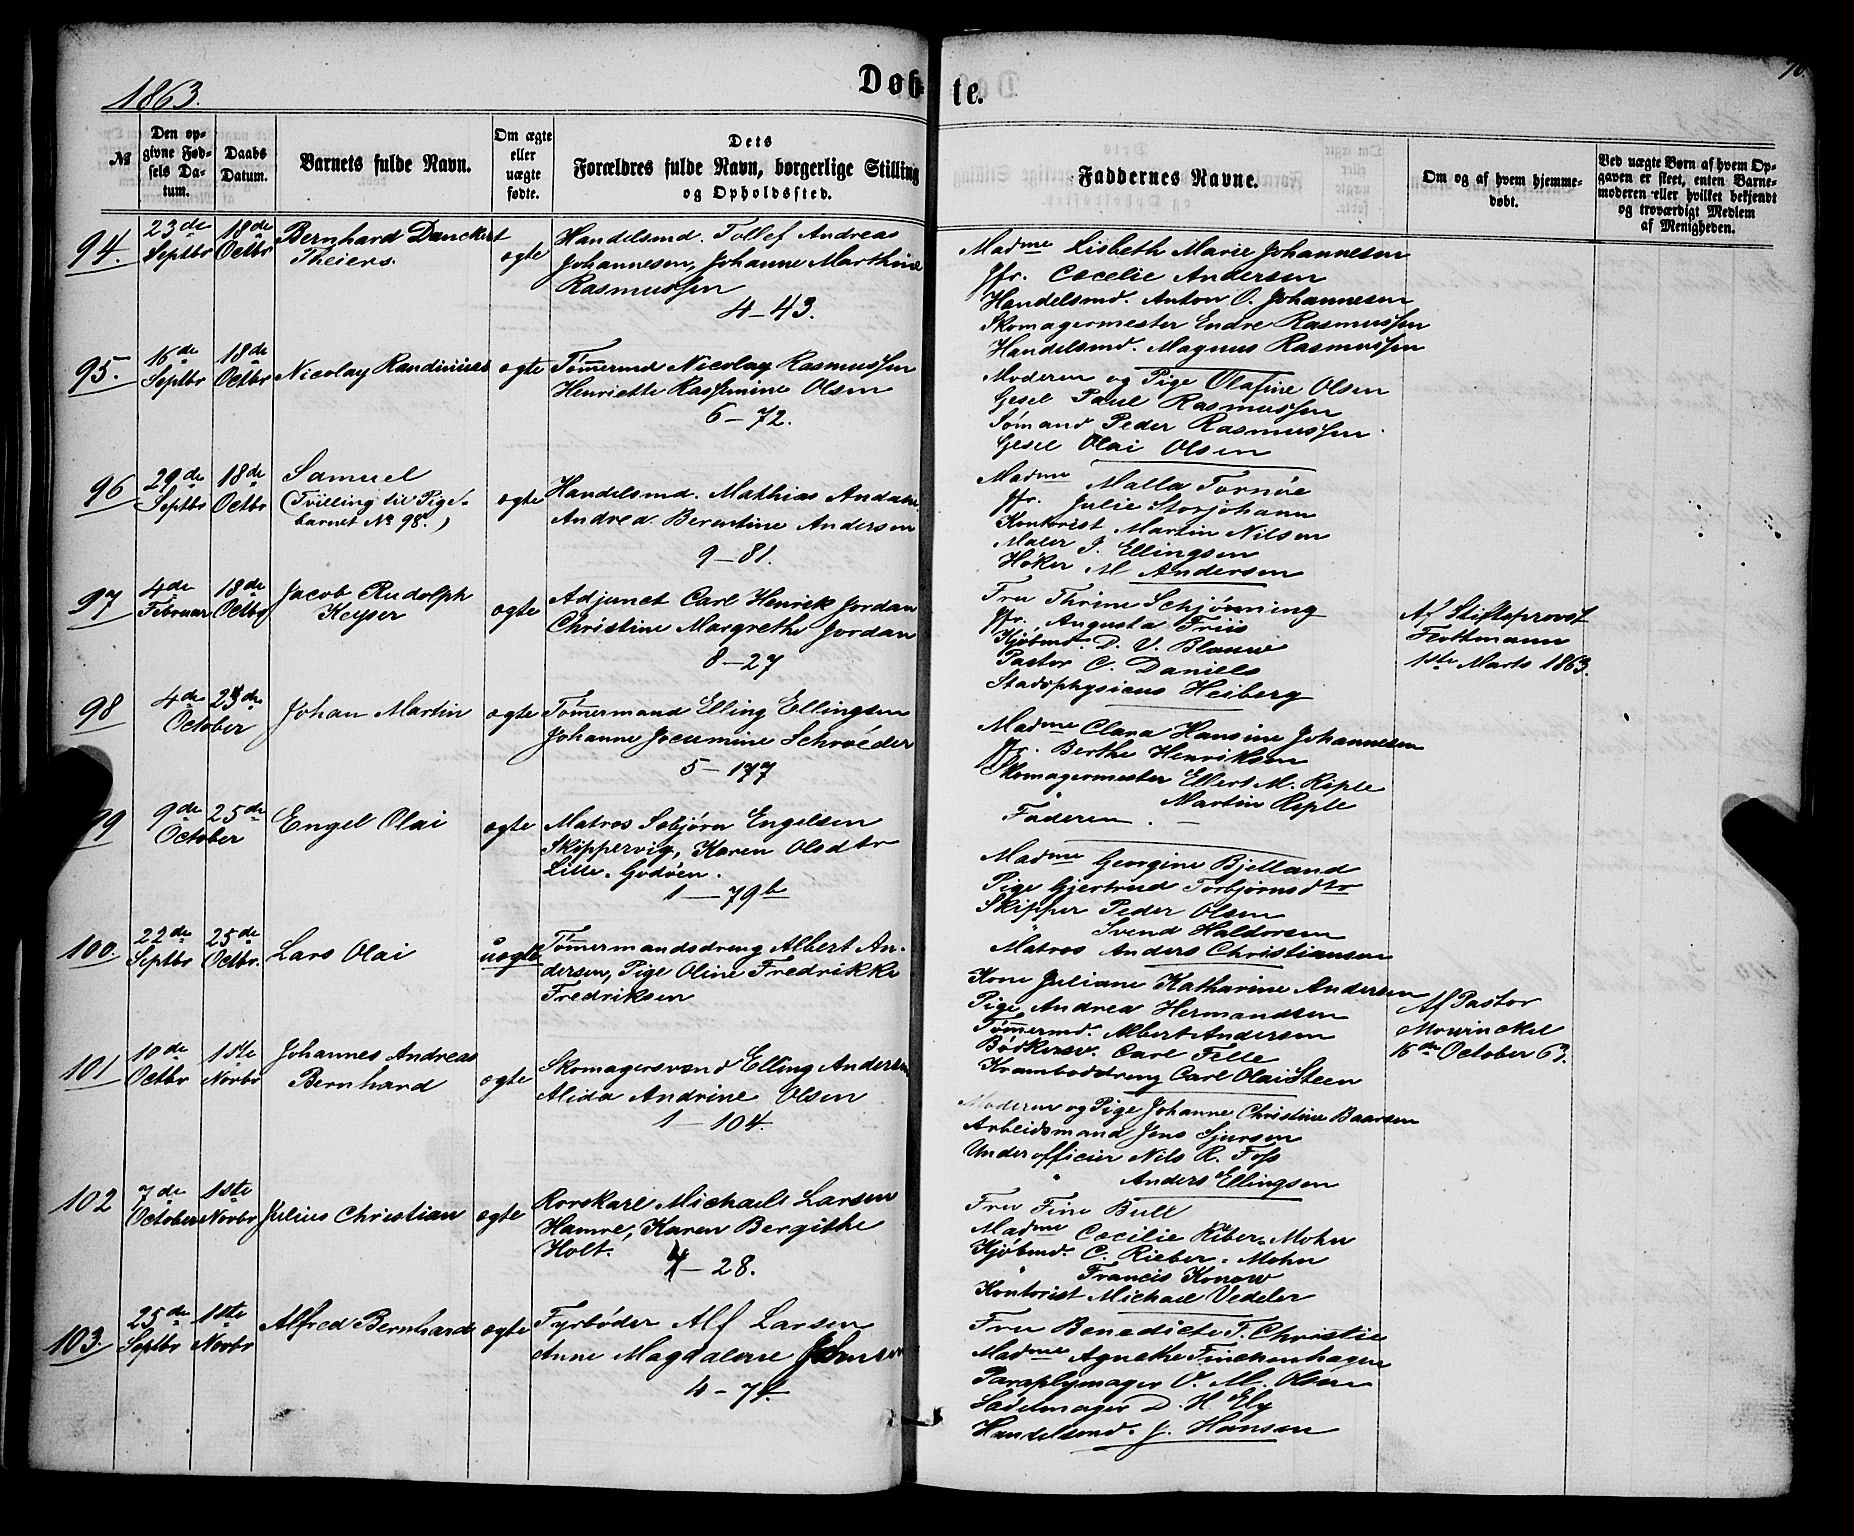 1863.
Døbte.
70.
№
Den opgivne Fødsels Datum.
Daabs Datum.
Barnets fulde Navn.
Om ægte eller uægte fødte.
Dets Forældres fulde Navn, borgerlige Stilling og Opholdssted.
Faddernes Navne.
Om og af hvem hjemmedøbt.
Ved uægte Børn af hvem Opgaven er skeet, enten Barnemoderen eller hvilket bekjendt og troværdigt Medlem af Menigheden.
94.
23de Septbr
18de Octbr
Bernhard Danckert
Theiers
ægte
Handelsmd. Tollef Andreas
Johannesen, Johanne Marthine
Rasmussen
4-43.
Madme Lisbeth Marie Johannesen
Jfr. Cæcelie Andersen
Handelsmd. Anton O. Johannesen
Skomagermester Endre Rasmussen
Handelsmd. Magnus Rasmussen
95.
16de Septbr
18de Octbr
Nicolay Randinius
ægte
Tømermd Nicolay Rasmussen
Henriette Rassmine Olsen
6-72.
Moderen og Pige Olafine Olsen
Gesel Paul Rasmussen
Sømand Peder Rasmussen
Gesel Olai Olsen
96
29de Septbr
18de Octbr
Samuel
(Tvilling til Pige-
barnet № 98.)
ægte
Handelsmd. Mathias Andam
Andrea Berentine Andersen
9-81.
Madme Malla Tornøe
Jfr. Julie Storjohann
Kontorist Martin Nilsen
Maler J. Ellingsen
Høker M Andersen
97
4de Februar
18de Octbr
Jacob Rudolph
Keyser
ægte
Adjunct Carl Henrik Jordan
Christine Margrethe Jordan
8-27
Fru Thrine Schjønning
Jfr. Augusta Friis
Kjøbmd. D. V. Blauw
Pastor C. Daniels
Stadsphysicus Heiberg
Af Stiftsprovst
Flottmann
1ste Marts 1863.
98
4de October
25de
Johan Martin
ægte
Tømermand Elling Ellingsen
Johanne Jocumine Schrøeder
5-177
Madme Clara Hansine Johannesen
Jfr. Berthe Henriksen
Skomagermester Ellert M. Riple
" Martin Riple
Faderen.
99
9de October
25de
Engel Olai
ægte
Matros Sebjørn Engelsen
Skippervig, Karen Olsdtr
Lille-Godøen.
1-79b
Madme Georgine Bjelland
Pige Gjertrud Torbjørnsdtr
Skipper Peder Olsen
" Svend Haldorsen
Matros Anders Christiansen
100.
22de Septbr
25de Octbr.
Lars Olai
uægte
Tømermandsdreng Albert An-
dersen, Pige Oline Fredrikke
Fredriksen
Kone Juliane Katharine Andersen
Pige Andrea Hermandsen
Tømermd. Albert Andersen
Bødkersv. Carl Felle
Kramboddreng Carl Olai Steen
Af Pastor
Mowinckel
16de October 63.
101
10de Octbr
1ste Novbr
Johannes Andreas
Bernhard
ægte
Skomagersvend Elling Andersen
Alida Andrine Olsen
1-104.
Moderen og Pige Johanne Christine Baarsen
Arbeidsmand Jens Sjursen
Underofficier Nils R. Foss
" Anders Ellingsen
102
7de October
1ste Novbr
Julius Christian
ægte
Rorskarl Michael Larsen
Hamre, Karen Bergithe
Holt.
4-28.
Fru Fine Bull
Madme Cæcilie Riber-Mohn
Kjøbmd. C. Rieber-Mohn
" Francis Konow
Kontorist Michael Vedeler
103.
25de Septbr
1ste Novbr
Alfred Bernhard
ægte
Fyrbøder Alf Larsen
Anne Magdalene Johnsen
4-71.
Fru Benedicte T. Christie
Madme Agnethe Finckenhagen
Paraplymager O. M. Olsen
Sadelmager D. H Ely
Handelsmd. J. Hansen